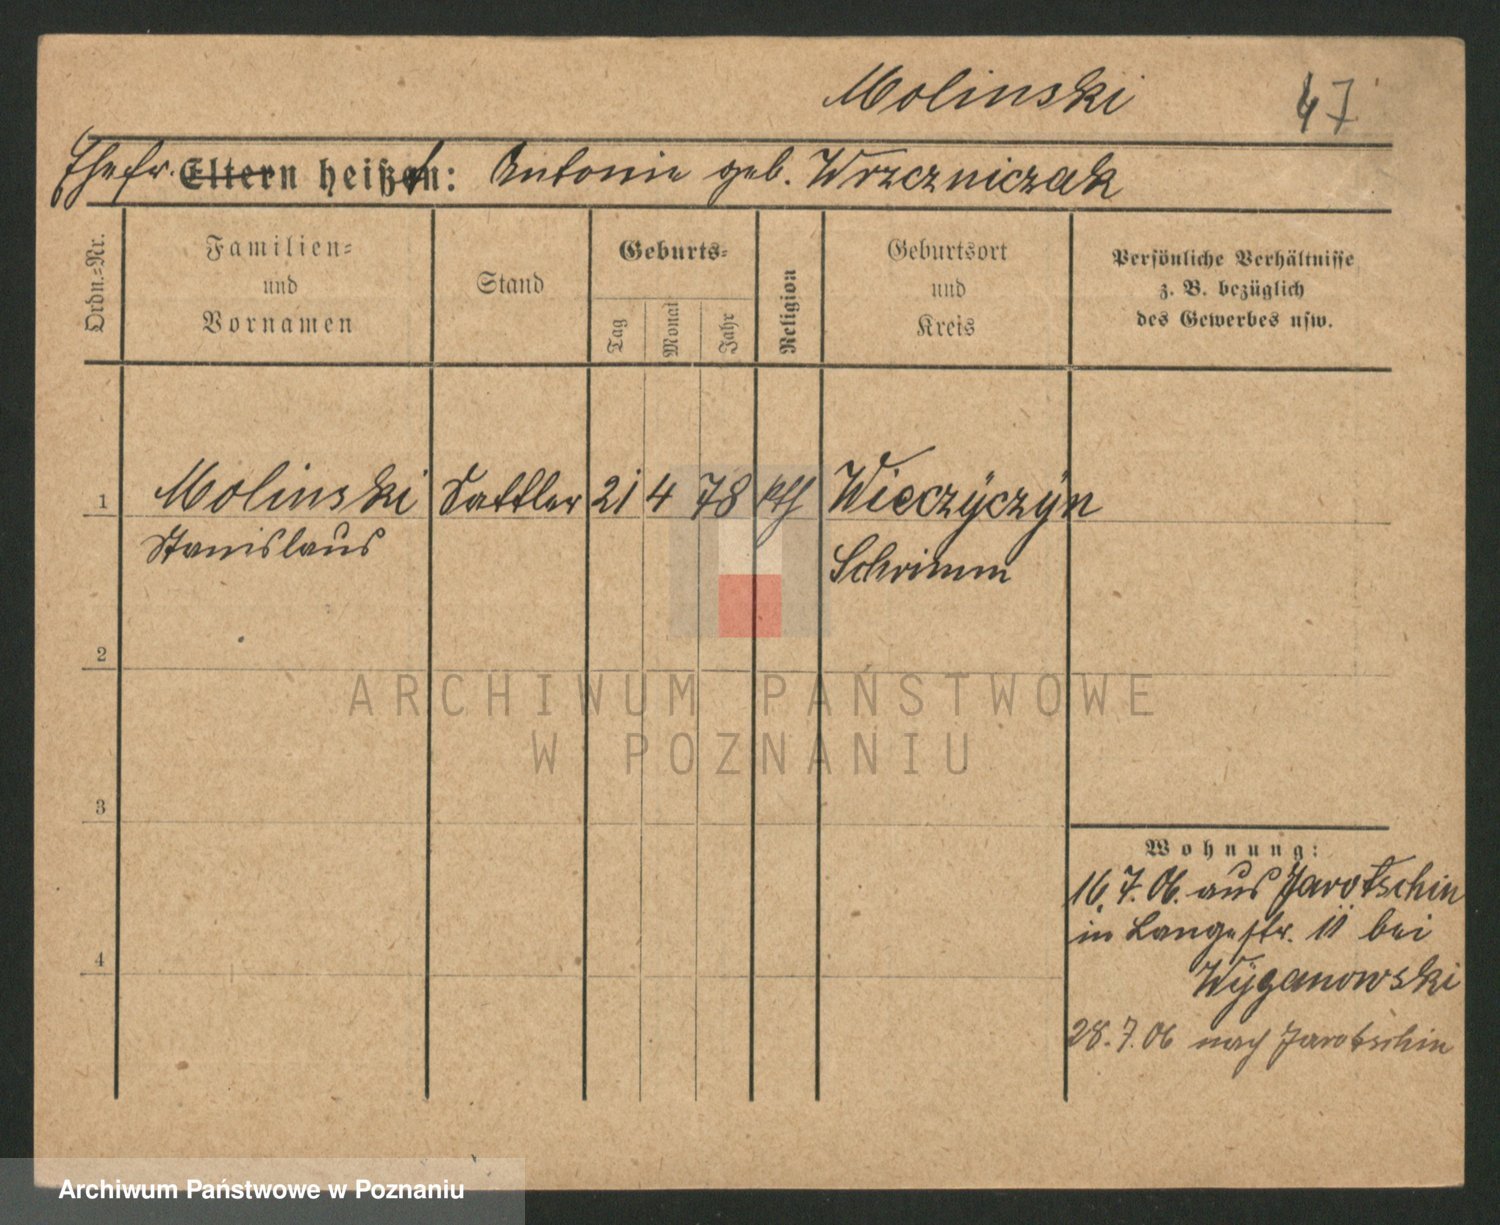 Molinski 47
Ehefr. Eltern heißen: Antonie geb. Wrzczniczak
Ordn.-Nr.
Familien-
und
Vornamen
Stand
Geburts-
Tag
Monat
Jahr
Religion
Geburtsort
und
Kreis
Persönliche Verhältnisse
z. B. bezüglich
des Gewerbes usw.
1 Molinski Sattler 21 4 78 kth Wieczyczyn
Stanislaus Schrimm
2
3
4
Wohnung:
16.7.06. aus Jarotschin
in Langestr. 11 bei
Wyganowski
28.7.06 nach Jarotschin
ARCHIWUM PAŃSTWOWE
W POZNANIU
Archiwum Państwowe w Poznaniu